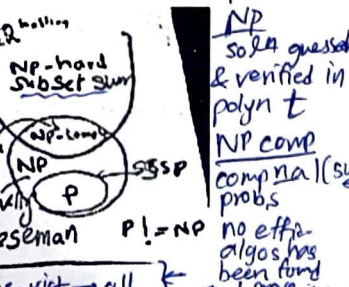 NP-hard
subset sum
NP-comp
NP
P
SSSP
P != NP
NP
soln guessed
& verified in
polyn t
NP comp
compnal (su
probs
no effi-
algos has
been found